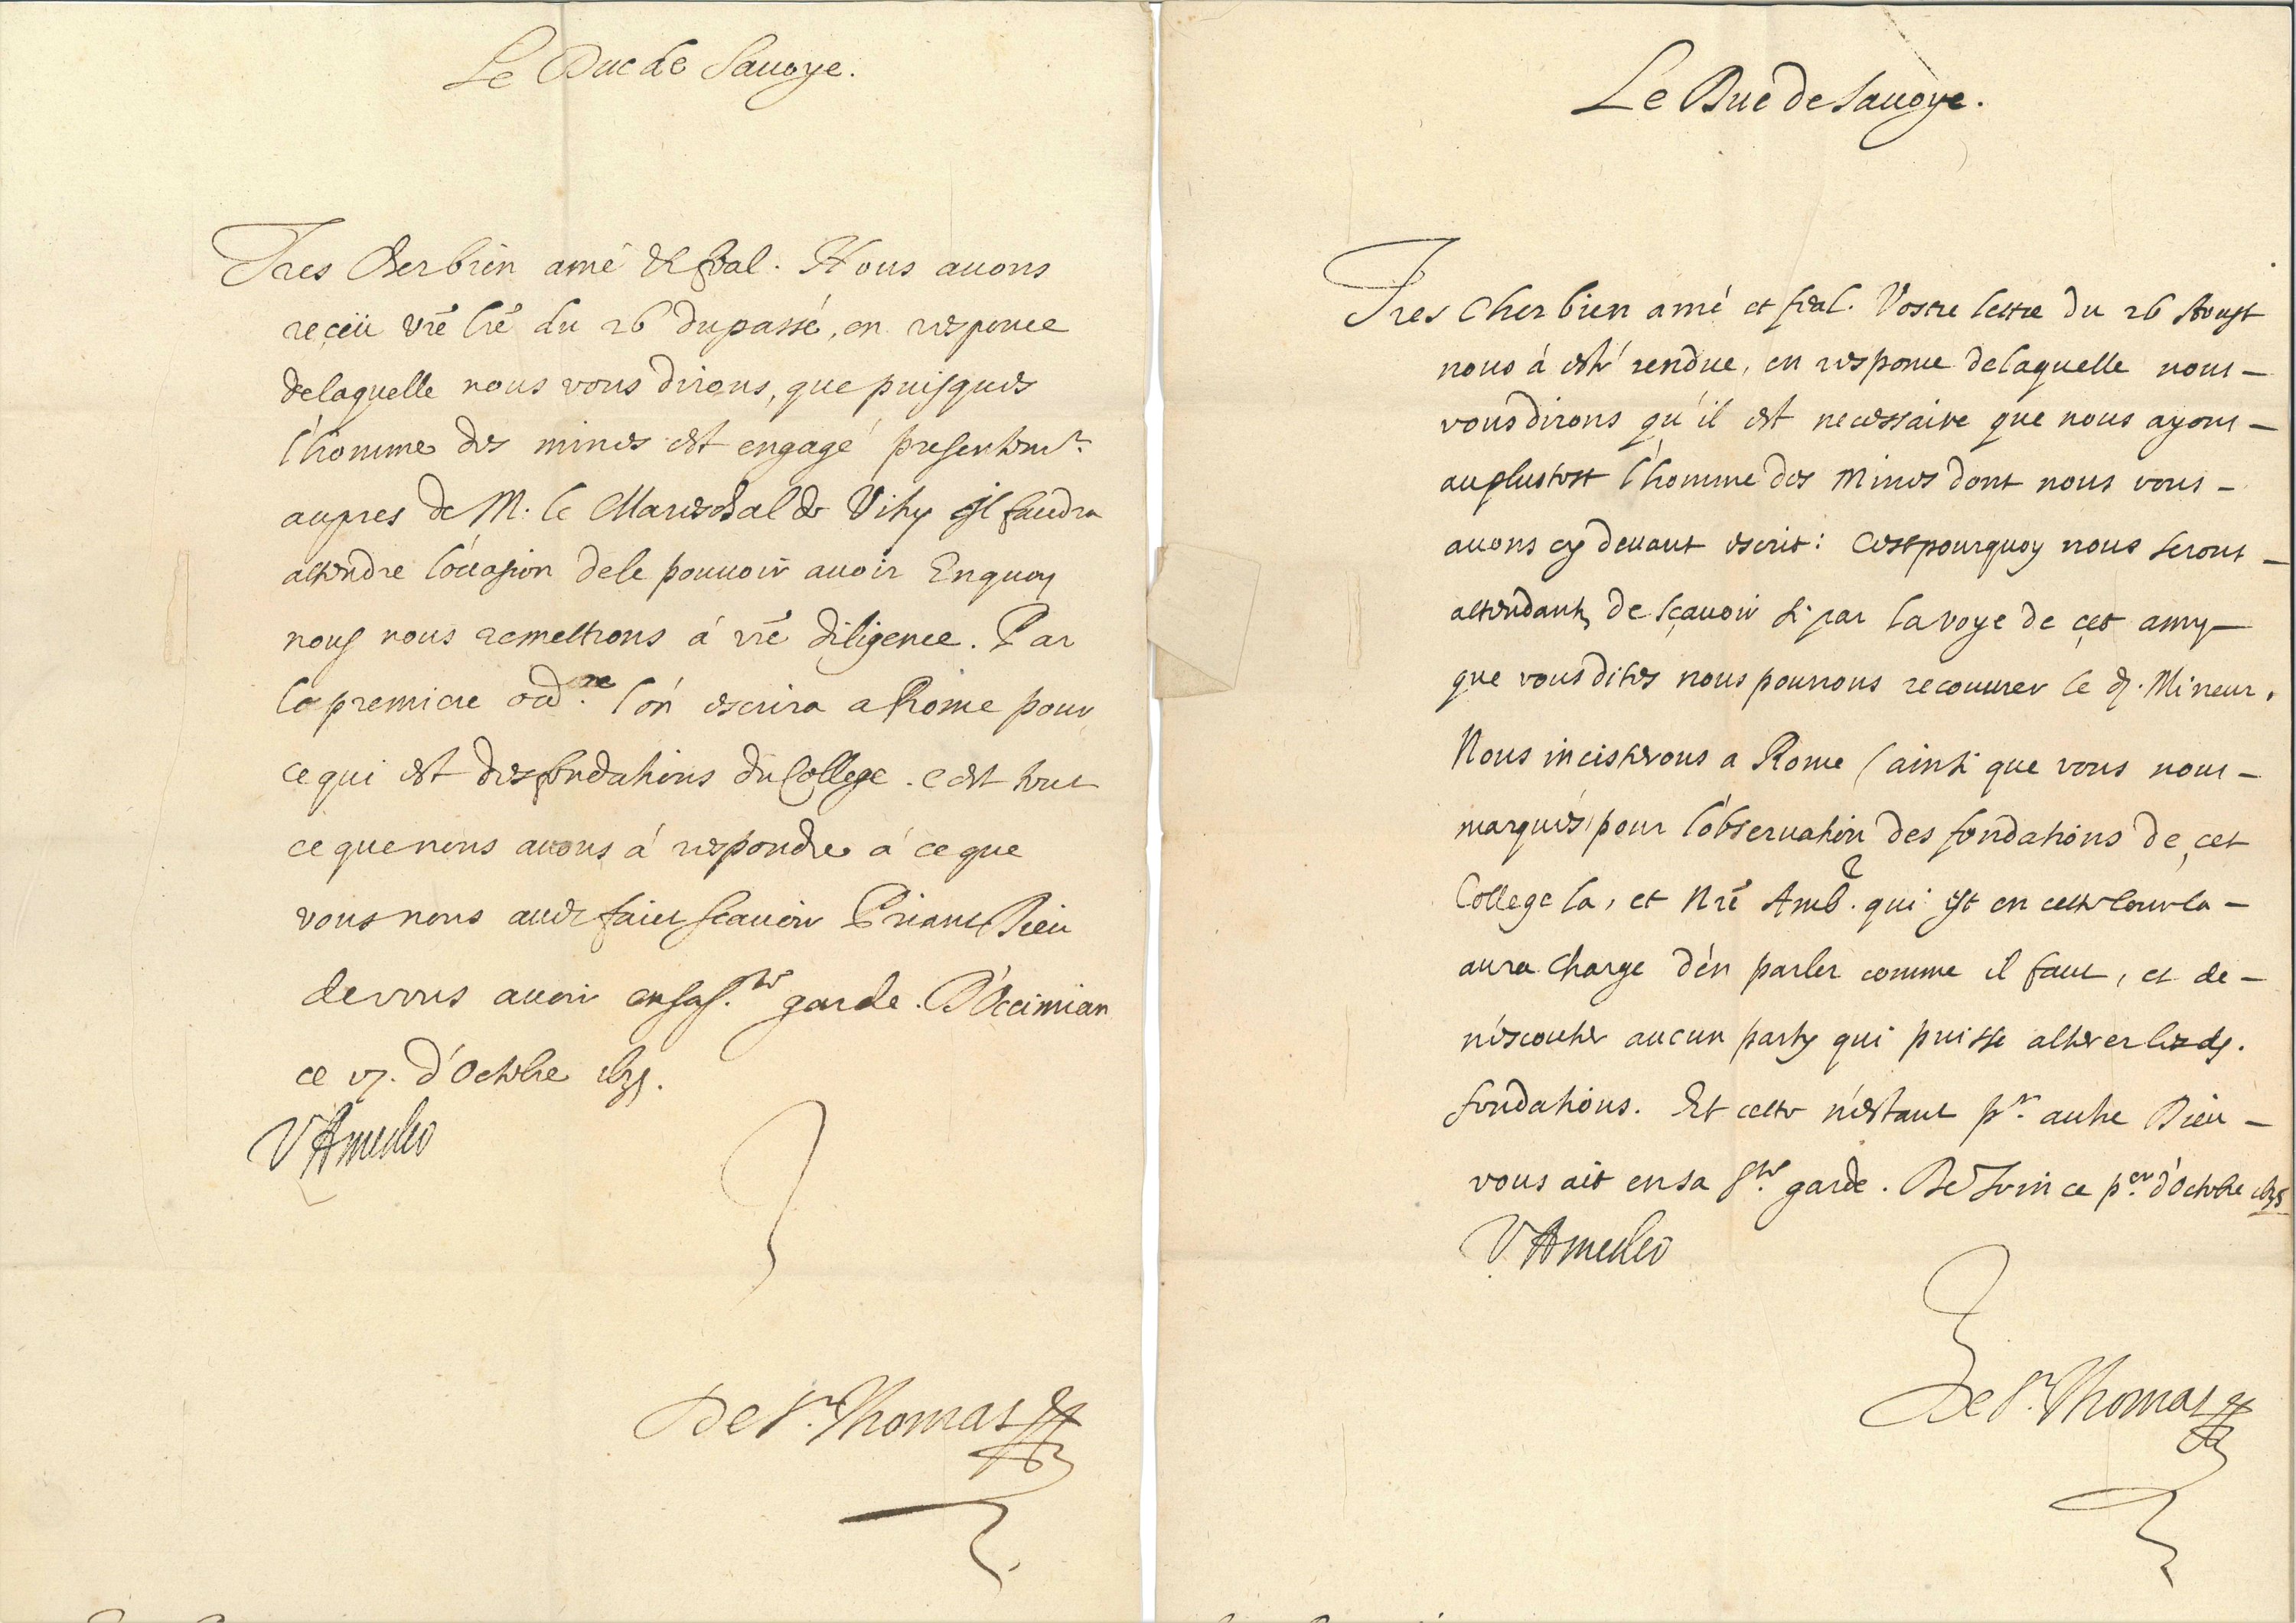 Le Duc de Sauoye.
Tres Cher bien amé et feal. Nous auons
receü vrẽ lrẽ du 26 du passé, en responce
de laquelle nous vous dirons, que puisques
l'homme des mines est engagé presentemt.
aupres de M. le Mareschal de Vitry il faudra
attendre l'occasion de le pouuoir auoir En quoy
nous nous remettrons á vrẽ diligence. Par
la premiere ord.re l'on escrira a Rome pour
ce qui est des fondations du College. c'est tout
ce que nous auons á respondre á ce que
vous nous auez faict scauoir Priant Dieu
de vous auoir en sa s.te garde. D'Occimian
ce d'Octobre
VAmedeo
De St. Thomas
Le Duc de Sauoye.
Tres Cher bien amé et feal. Vostre lettre du 26 Aoust
nous à esté rendue, en responce de laquelle nous
vous dirons qu'il est necessaire que nous ayons
au plustost l'homme des Mines dont nous vous
auons cy deuant escrit: C'est pourquoy nous serons
attendants de sçauoir si par la voye de cet amy
que vous dites nous pourrons recouurer le d. Mineur.
Nous incisterons a Rome (ainsi que vous nous
marqués) pour l'obseruation des fondations de cet
College la, et Nrẽ Amb.r qui est en cette Cour la
aura charge d'en parler comme il faut, et de
n'escouter aucun party qui puisse alterer lesd.
fondations. Et cette n'estant pr. autre Dieu
vous ait en sa s.te garde. De Turin ce p.er d'Octobre 1635
VAmedeo
De St. Thomas